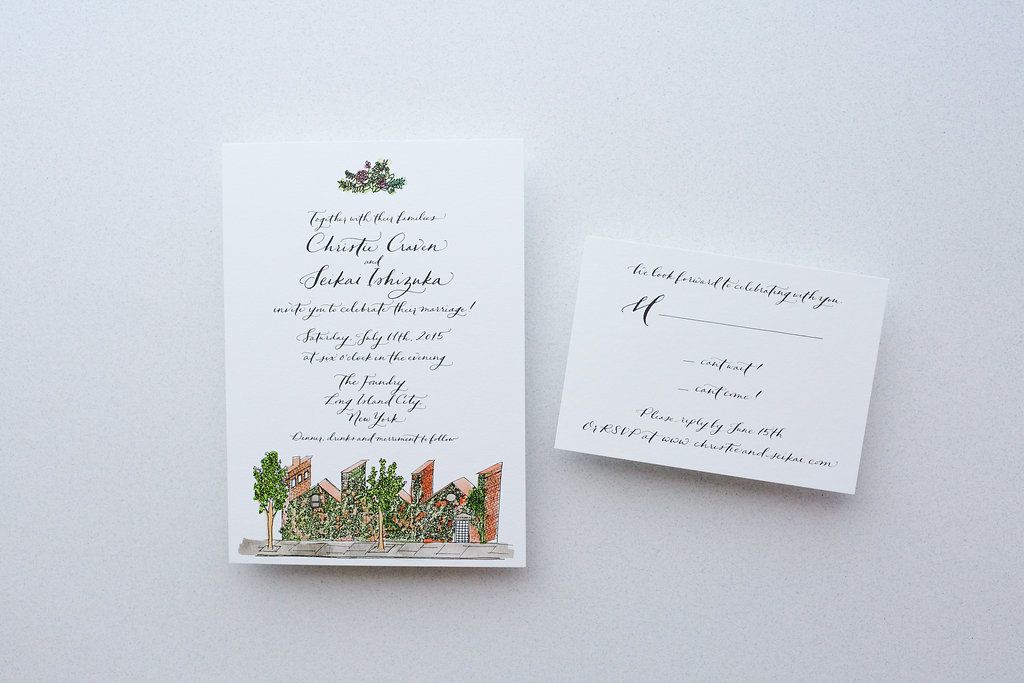 Together with their families
Christie Craven
and
Seikai Ishizuka
invite you to celebrate their marriage!
Saturday, July 11th, 2015
at six o'clock in the evening
The Foundry
Long Island City,
New York
Dinner, drinks and merriment to follow
We look forward to celebrating with you.
M
— can't wait!
— can't come!
Please reply by June 15th
Or RSVP at www.christieandseikai.com